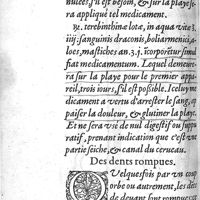 nulces, s'il est besoin, & sur la playe se-
ra appliqué tel medicament.
℞. terebinthinæ lotæ, in aqua vitæ ℥.
iiij. sanguinis draconis, boli armenici, a-
loes, mastiches an. ʒ.j. incorporetur simul
fiat medicamentum. Lequel demeure-
ra sur la playe pour le premier appa-
reil, trois iours, s'il est possible. Iceluy me-
dicament a vertu d'arrester le sang, ap-
paiser la douleur, & glutiner la playe.
Et ne sera vsé de nul digestif ou suppu-
ratif, prenant indication que c'est vne
partie seiche, & canal du cerueau.
Des dents rompues.
QVelquesfois par vn coup
orbe ou autrement, les dẽts
de deuant sont rompues